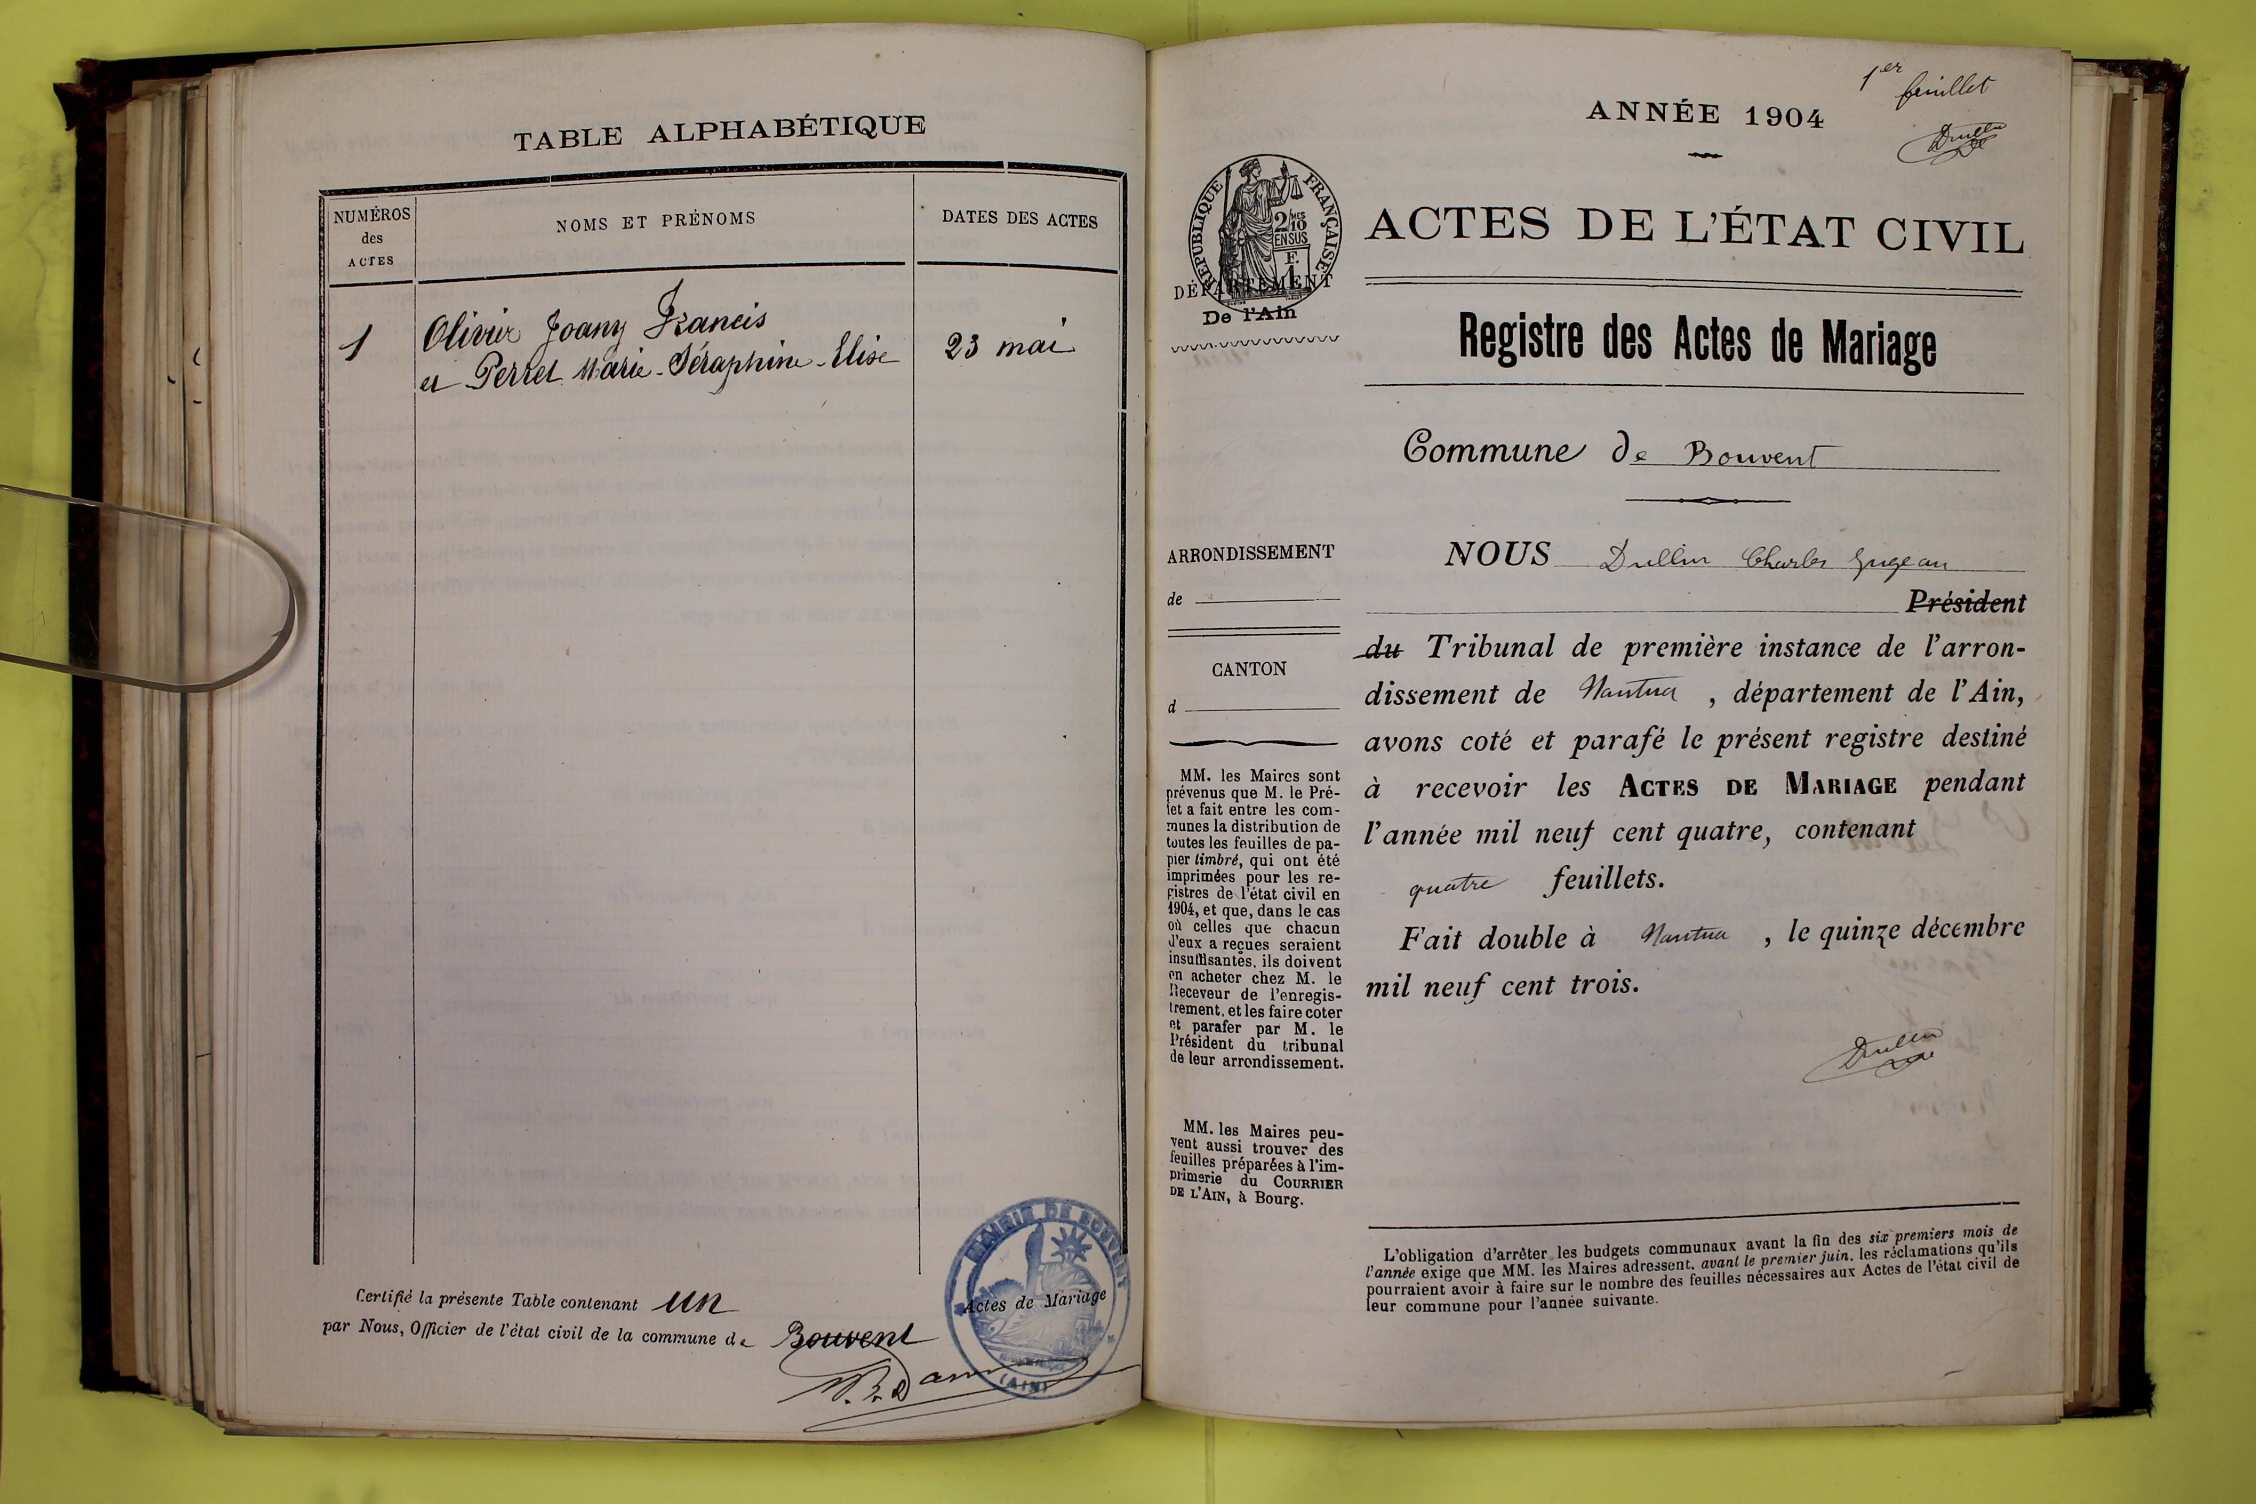 TABLE ALPHABÉTIQUE
NUMÉROS
des
ACTES
NOMS ET PRÉNOMS
DATES DES ACTES
1
Olivier Joany Francis
et Perret Marie-Séraphine-Elise
23 mai
Certifié la présente Table contenant un
Actes de Mariage
par Nous, Officier de l'état civil de la commune de Bouvent
MAIRIE DE BOUVENT
(AIN)
1er feuillet
Dullin
ANNÉE 1904
RÉPUBLIQUE FRANÇAISE
2/10 MES
EN SUS
F.
1
DÉPARTEMENT
De l'Ain
ACTES DE L'ÉTAT CIVIL
Registre des Actes de Mariage
Commune de Bouvent
ARRONDISSEMENT
de
CANTON
d
MM. les Maires sont
prévenus que M. le Pré-
fet a fait entre les com-
munes la distribution de
toutes les feuilles de pa-
pier timbré, qui ont été
imprimées pour les re-
gistres de l'état civil en
1904, et que, dans le cas
où celles que chacun
d'eux a reçues seraient
insuffisantes, ils doivent
en acheter chez M. le
Receveur de l'enregis-
trement, et les faire coter
et parafer par M. le
Président du tribunal
de leur arrondissement.
MM. les Maires peu-
vent aussi trouver des
feuilles préparées à l'im-
primerie du COURRIER
DE L'AIN, à Bourg.
NOUS Dullin Charles Eugène
Président
du Tribunal de première instance de l'arron-
dissement de Nantua, département de l'Ain,
avons coté et parafé le présent registre destiné
à recevoir les ACTES DE MARIAGE pendant
l'année mil neuf cent quatre, contenant
quatre feuillets.
Fait double à Nantua, le quinze décembre
mil neuf cent trois.
Dullin
L'obligation d'arrêter les budgets communaux avant la fin des six premiers mois de
l'année exige que MM. les Maires adressent, avant le premier juin, les réclamations qu'ils
pourraient avoir à faire sur le nombre des feuilles nécessaires aux Actes de l'état civil de
leur commune pour l'année suivante.